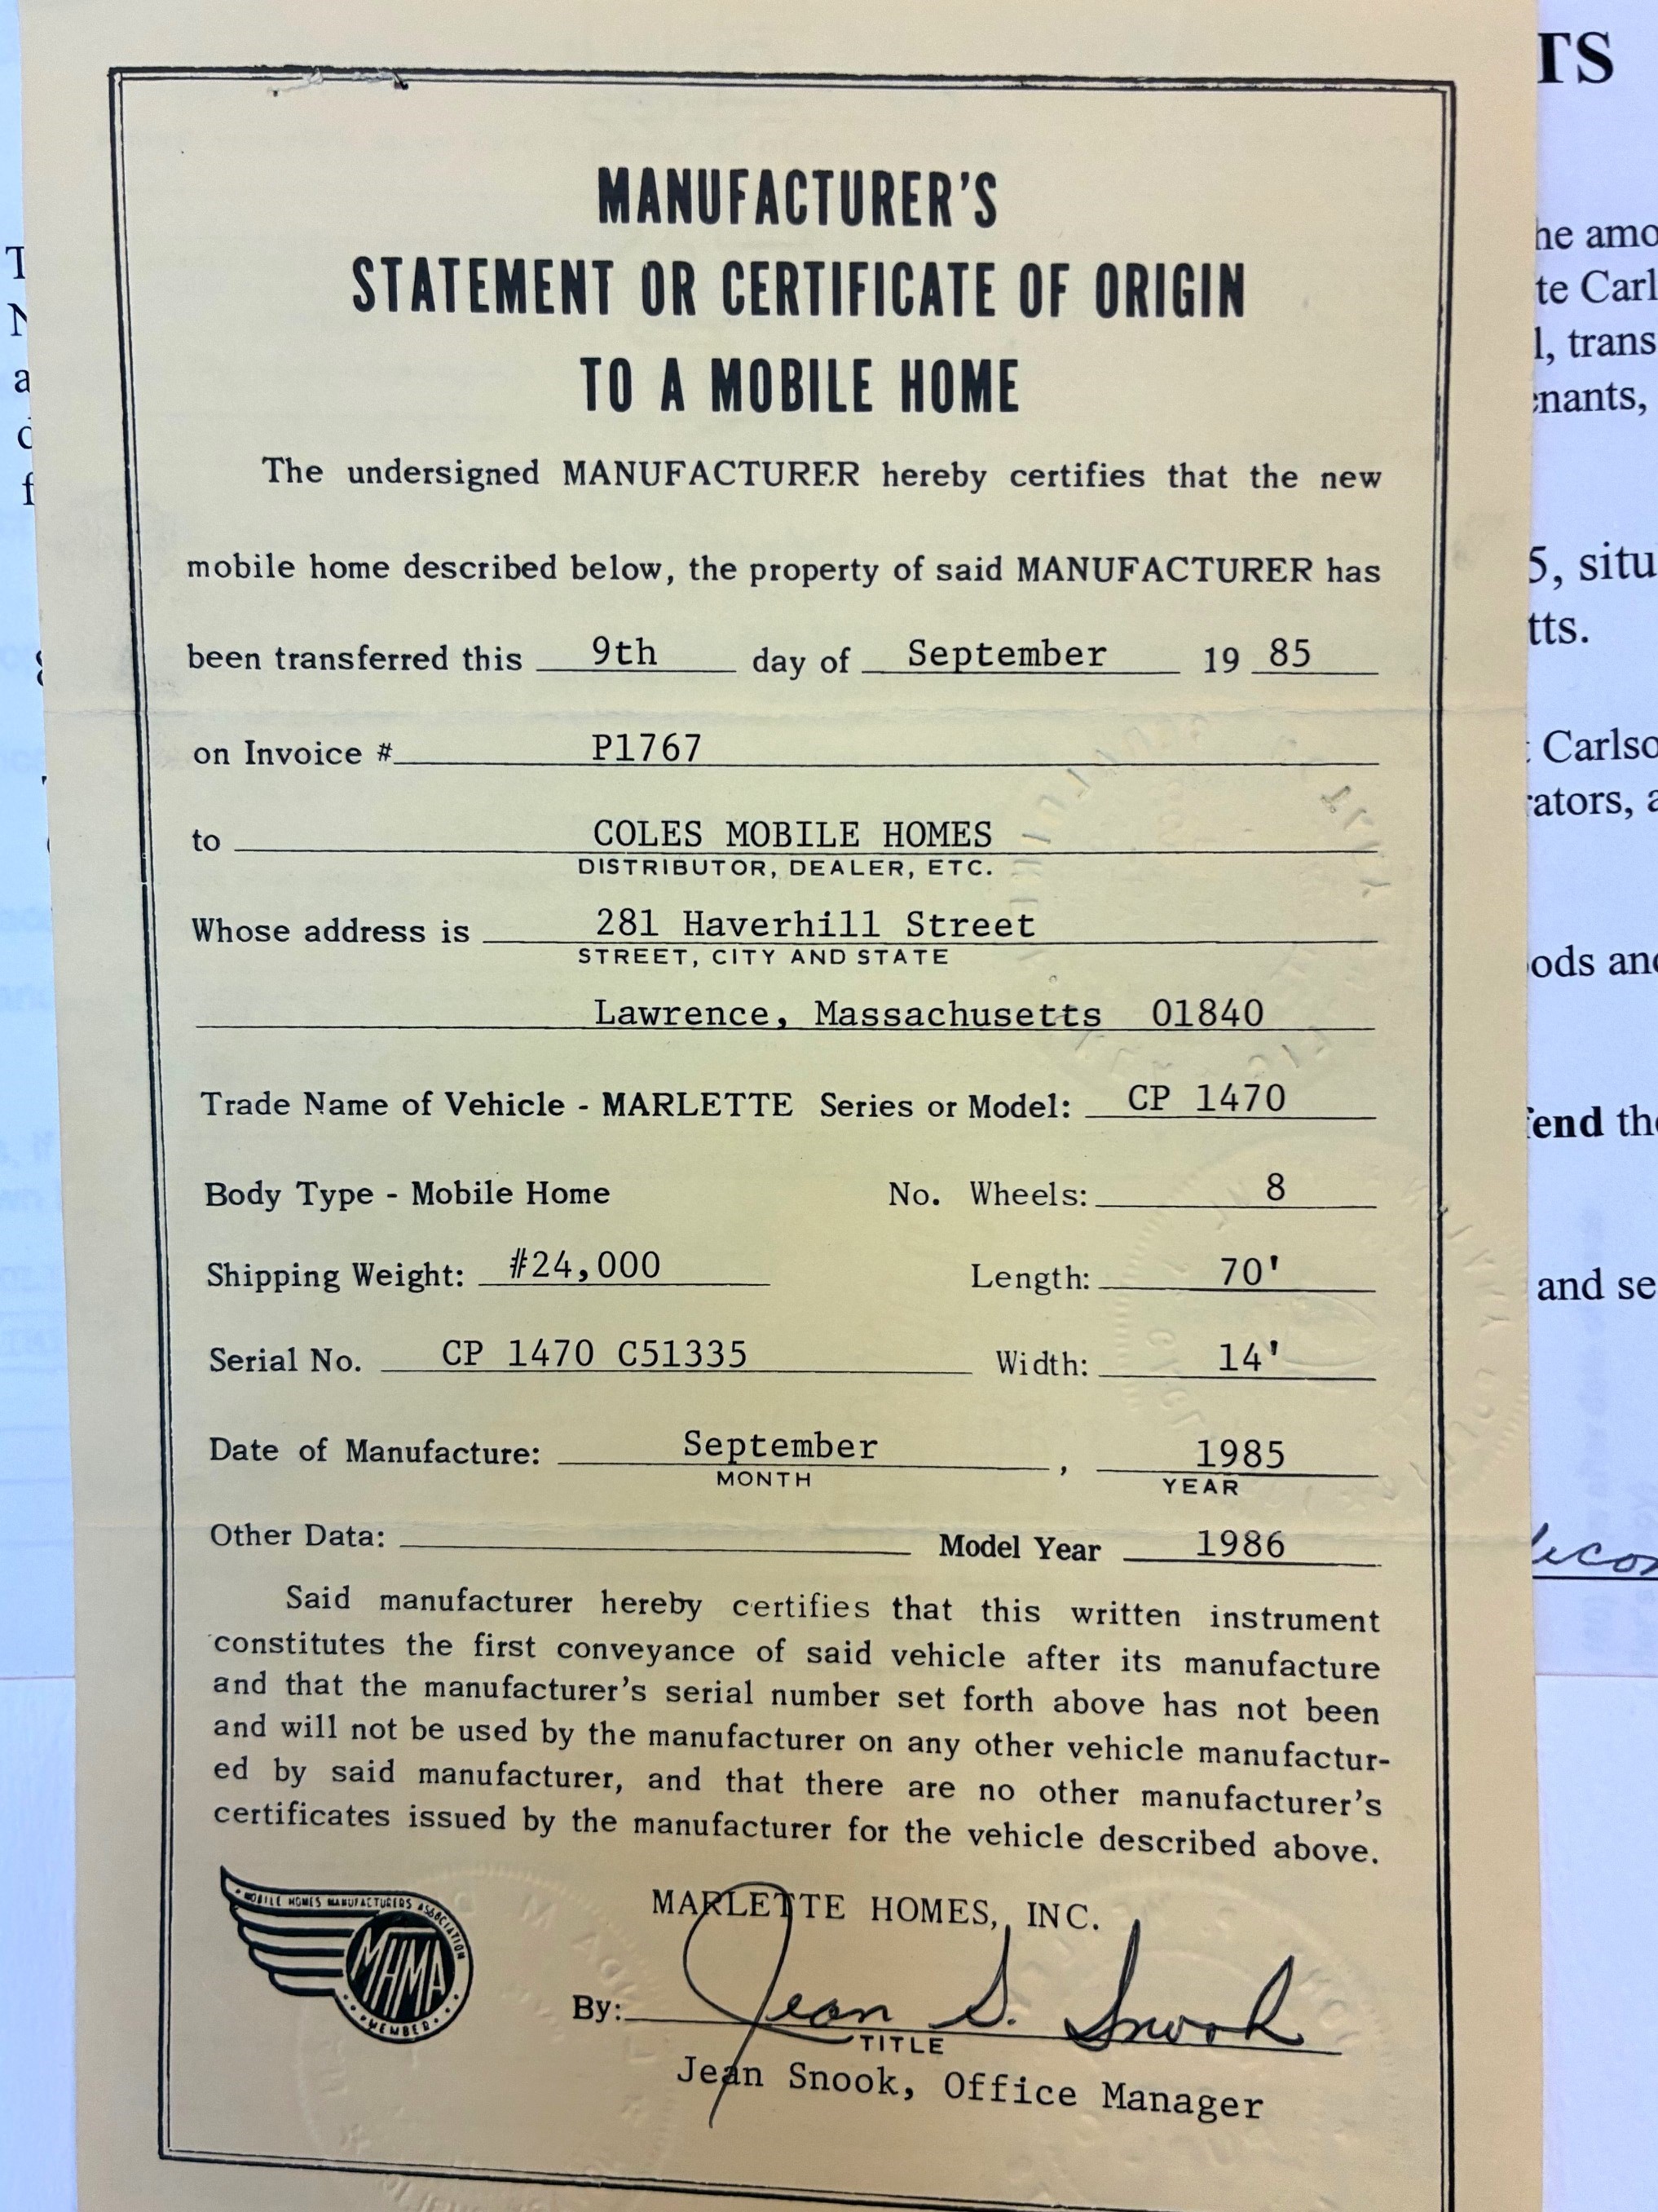 MANUFACTURER'S
STATEMENT OR CERTIFICATE OF ORIGIN
TO A MOBILE HOME
The undersigned MANUFACTURER hereby certifies that the new
mobile home described below, the property of said MANUFACTURER has
been transferred this 9th day of September 19 85
on Invoice # P1767
to COLES MOBILE HOMES
DISTRIBUTOR, DEALER, ETC.
Whose address is 281 Haverhill Street
STREET, CITY AND STATE
Lawrence, Massachusetts 01840
Trade Name of Vehicle - MARLETTE Series or Model: CP 1470
Body Type - Mobile Home No. Wheels: 8
Shipping Weight: #24,000 Length: 70'
Serial No. CP 1470 C51335 Width: 14'
Date of Manufacture: September , 1985
MONTH YEAR
Other Data: Model Year 1986
Said manufacturer hereby certifies that this written instrument
constitutes the first conveyance of said vehicle after its manufacture
and that the manufacturer's serial number set forth above has not been
and will not be used by the manufacturer on any other vehicle manufactur-
ed by said manufacturer, and that there are no other manufacturer's
certificates issued by the manufacturer for the vehicle described above.
MOBILE HOMES MANUFACTURERS ASSOCIATION
MHMA
MEMBER
MARLETTE HOMES, INC.
By: Jean S. Snook
TITLE
Jean Snook, Office Manager
TS
he amo
te Carl
l, trans
enants,
5, situ
tts.
Carlso
rators, a
ods and
fend the
and se